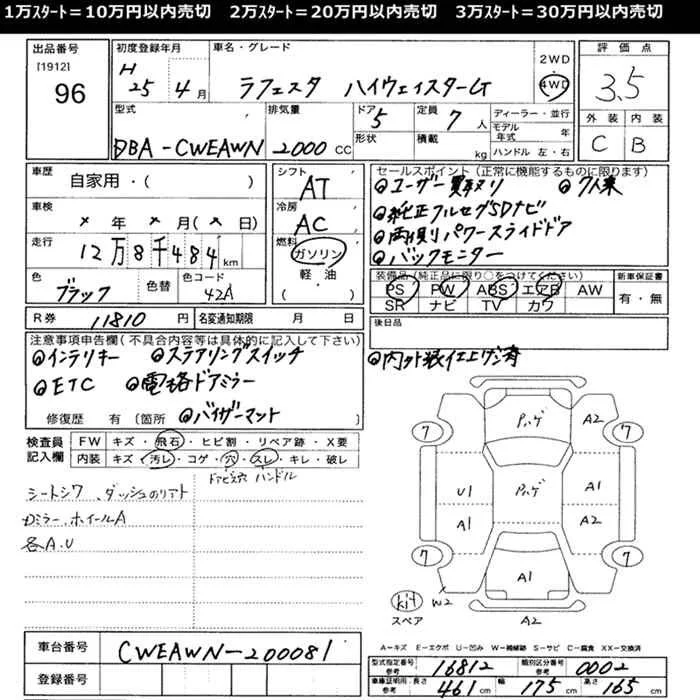 1万スタート＝10万円以内売切　2万スタート＝20万円以内売切　3万スタート＝30万円以内売切
出品番号
[1912]
96
初度登録年月
H 25年 4月
車名・グレード
ラフェスタ ハイウェイスターG
2WD・4WD
評価点
3.5
外装 内装
C B
型式
DBA-CWEAWN
排気量
2000 CC
ドア 5
形状
定員 7人
積載 kg
ディーラー・並行
モデル年式 年
ハンドル 左・右
車歴
自家用・( )
車検
× 年 × 月(× 日)
走行
12万8千484 km
色
ブラック
色替
色コード
42A
シフト
AT
冷房
AC
燃料
ガソリン
軽油
( )
セールスポイント(正常に機能するものに限ります)
◎ユーザー買取り ◎7人乗
◎純正フルセグSDナビ
◎両側パワースライドドア
◎バックモニター
装備品(純正品に限り○をつけてください)
PS PW ABS エアB AW
SR ナビ TV カワ
新車保証書
有・無
R券 11810 円
名変通知期限 月 日
後日品
注意事項申告欄(不具合内容等は具体的に記入して下さい)
◎インテリキー ◎ステアリングスイッチ
◎ETC ◎電格ドアミラー
修復歴 有(箇所 ◎バイザーマット
◎内外装仕上げ済
検査員記入欄
FW キズ・飛石・ヒビ割・リペア跡・X要
内装 キズ・汚レ・コゲ・穴・スレ・キレ・破レ
ドアビス穴 ハンドル
シートシワ、ダッシュのリアト
Dミラー、ホイールA
各A.U
7 7 7 7
A2
U1 A1
A1 A2
A1
W2
A2
キット
スペア
車台番号
CWEAWN-200081
登録番号
A－キズ E－エクボ U－凹み W－補修跡 S－サビ C－腐食 XX－交換済
型式指定番号 参考 16812
類別区分番号 参考 0002
車庫証明用・長さ 参考 461 cm 幅 175 cm 高さ 165 cm